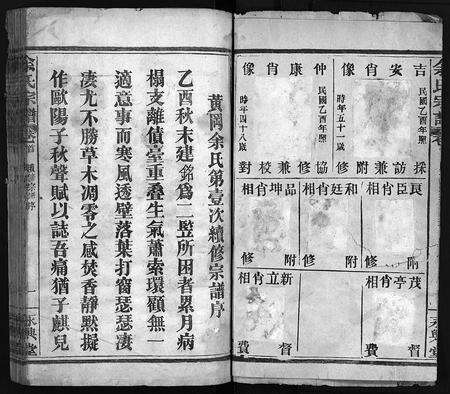 余氏宗譜
吉安肖像
民國乙酉年照
時年五十一歲
採訪兼附修
仲康肖像
民國乙酉年照
時年四十八歲
協修兼校對
良臣肖相
附修
和廷肖相
附修
品坤肖相
附修
茂亭肖相
督費
新立肖相
督費
永興堂
黃岡余氏第壹次續修宗譜序
乙酉秋末建銘為二監所困者累月病
榻支離值臺重叠生氣蕭索環顧無一
適意事而寒風透壁落葉打窗瑟瑟淒
淒尤不勝草木凋零之感焚香靜默擬
作歐陽子秋聲賦以誌吾痛猶子麒兒
余氏宗譜
永興堂